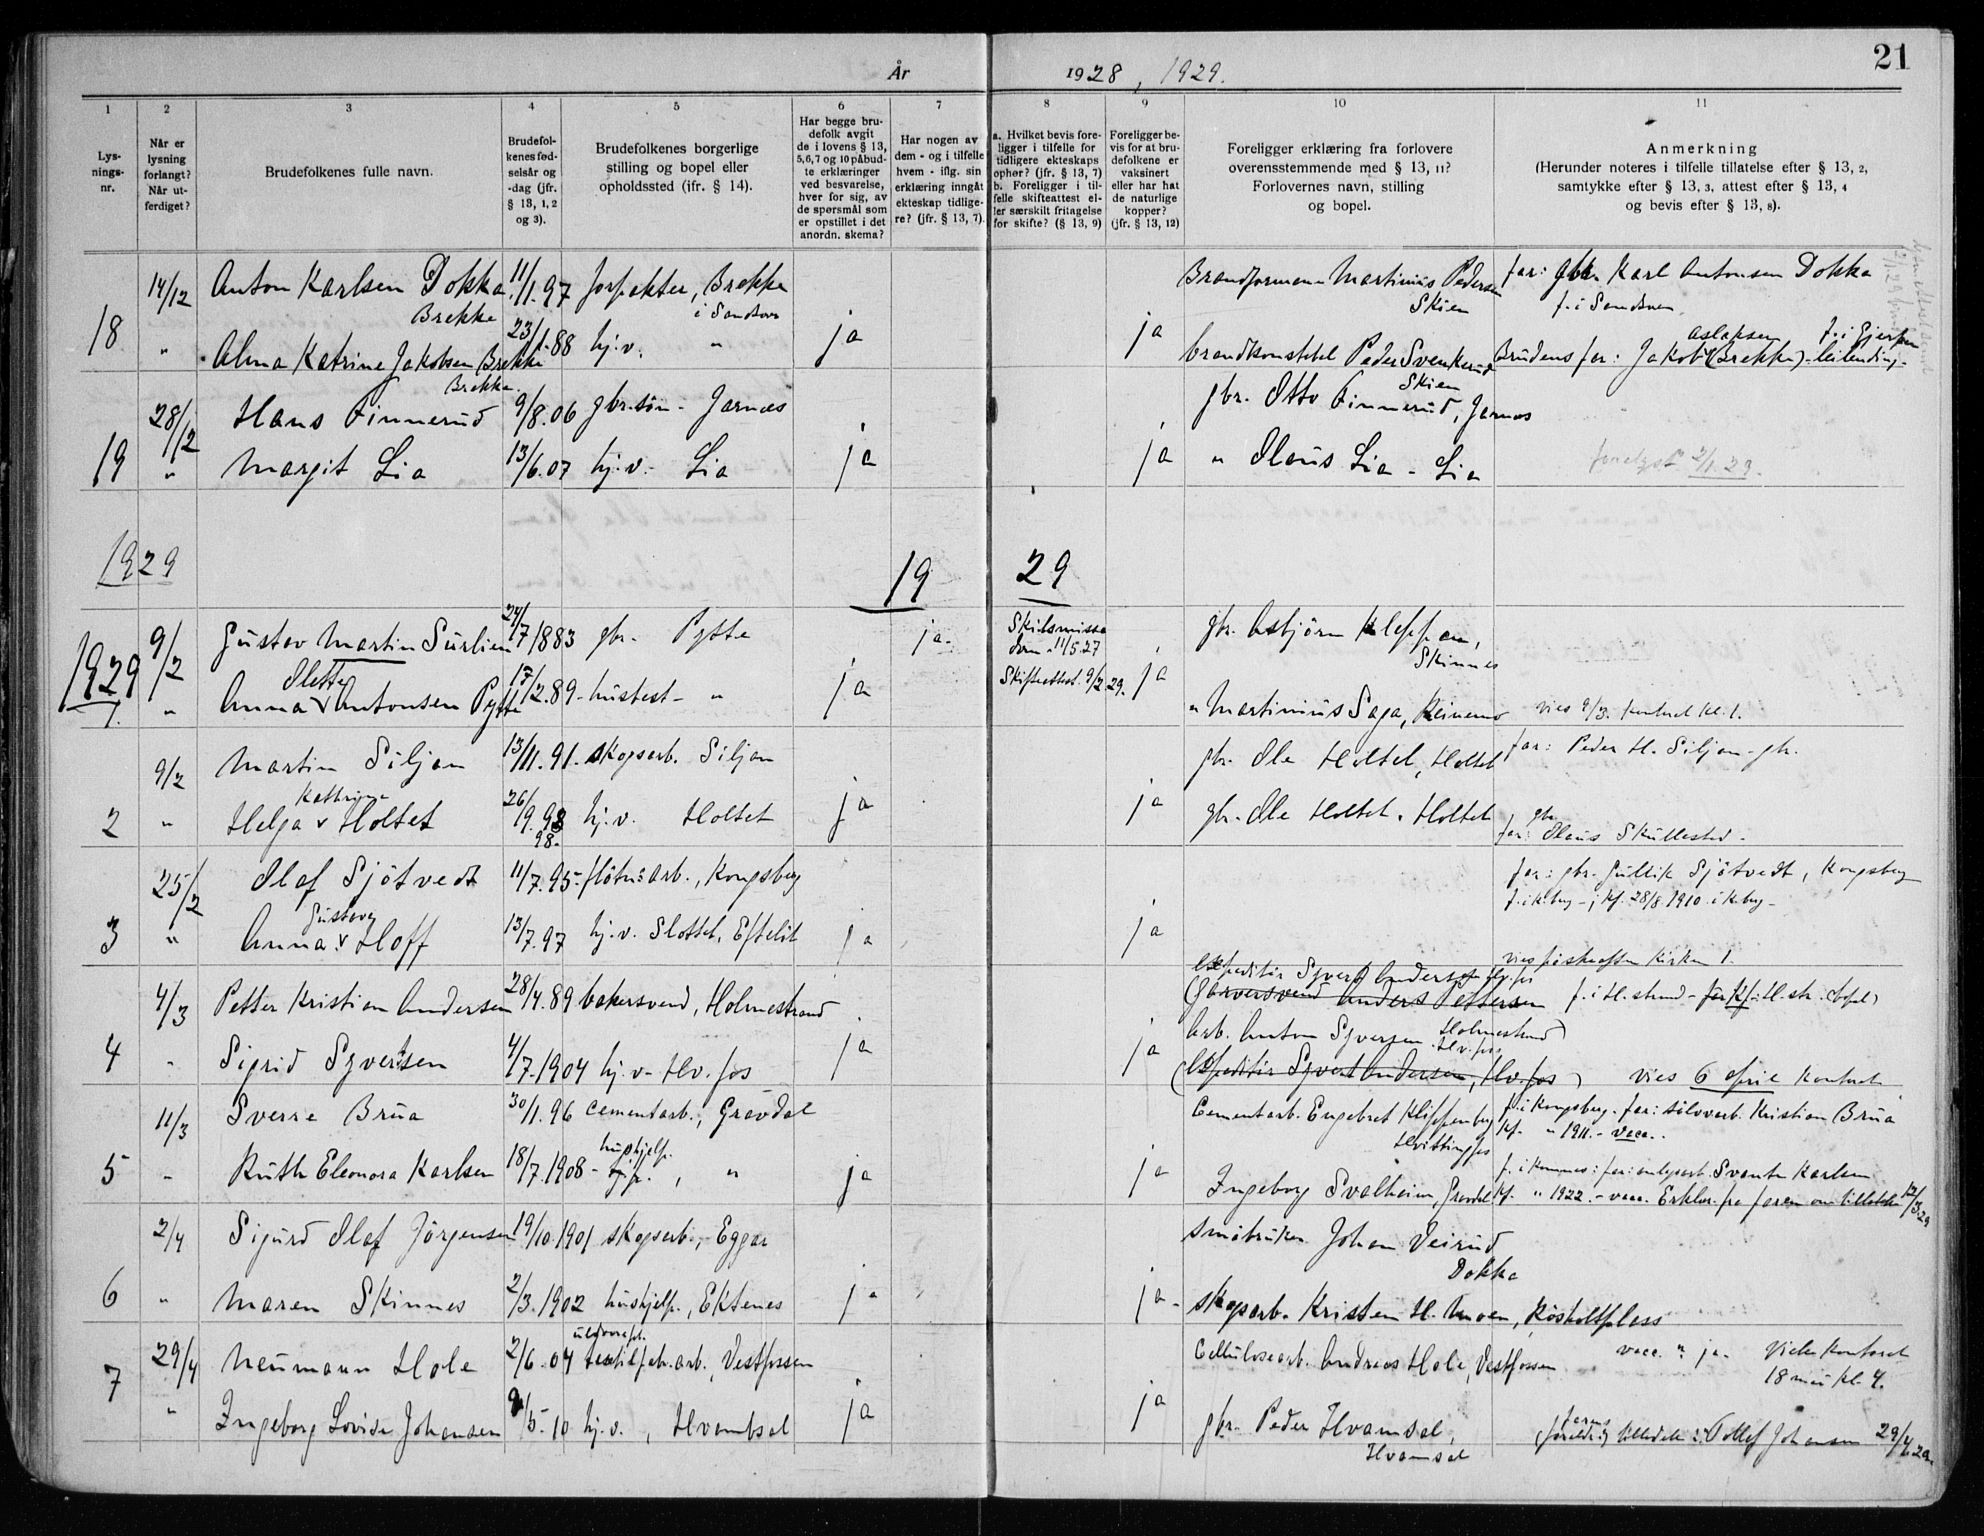 År 1928, 1929. 21
1 2 3 4 5 6 7 8 9 10 11
Lys-
nings-
nr.
Når er
lysning
forlangt?
Når ut-
ferdiget?
Brudefolkenes fulle navn.
Brudefol-
kenes fød-
selsår og
-dag (jfr.
§ 13, 1, 2
og 3).
Brudefolkenes borgerlige
stilling og bopel eller
opholdssted (ifr. § 14).
Har begge bru-
defolk avgit
de i lovens § 13,
5,6,7 og 10 påbud-
te erklæringer
ved besvarelse,
hver for sig, av
de spørsmål som
er opstillet i det
anordn. skema?
Har nogen av
dem - og i tilfelle
hvem - iflg. sin
erklæring inngått
ekteskap tidlige-
re? (jfr. § 13, 7).
a. Hvilket bevis fore-
ligger i tilfelle for
tidligere ekteskaps
ophør? (jfr. § 13, 7)
b. Foreligger i til-
felle skifteattest el-
ler særskilt fritagelse
for skifte? (§ 13, 9)
Foreligger be-
vis for at bru-
defolkene er
vaksinert
eller har hat
de naturlige
kopper?
(jfr. § 13, 12)
Foreligger erklæring fra forlovere
overensstemmende med § 13, 11?
Forlovernes navn, stilling
og bopel.
Anmerkning
(Herunder noteres i tilfelle tillatelse efter § 13, 2,
samtykke efter § 13, 3, attest efter § 13, 4
og bevis efter § 13, 8).
14/12 Anton Karlsen Dokka 11/1.97 forpakter, Brekke Martinius Pedersen far: gbr. Karl Antonsen Dokka
Brekke i Sandsvær Skien f. i Sandsvær
18 " Alma Katrine Jakobsen Brekke 23/1.88 hj.v. " ja ja Peder Svenkerud Brudens far: Jakob (Brekke) - leilending -
Aslaksen f. i Gjerpen
Brekke. Skien
28/12 Hans Finnerud 9/8.06 gbr.søn - Jarnæs gbr. Otto Finnerud, Jarnæs
19 " Margit Lia 13/6.07 hj.v. - Lia ja ja " Olaus Lia - Lia 2/1.29.
1929 19 29
1929 9/2 Gustav Martin Surlien 24/7 1883 gbr. Pytte ja. Skilsmisse gbr. Asbjörn Kleppen,
dom 11/5.27 Skinnes
Olette
1. " Anna v Antonsen Pytte 17/2.89 - hustest - " ja Skifteattest. 9/2.29. ja " Martinius Saga, vies 9/3. kontoret kl. 1.
9/2 Martin Siljan 13/11.91. skogsarb. Siljan gbr. Ole Holtet, Holtet far: Peder H. Siljan - gbr.
Kathrine
2 " Helga v Holtet 26/9.93 hj.v. Holtet ja ja gbr. Ole Holtet. Holtet far: gbr. Olaus Skullestad -
98.
25/2 Olaf Sjötvedt 11/7.95 - flötn:arb., Kongsberg far: gbr. Gullik Sjötvedt, Kongsberg
f. i K.berg - kf. 28/8.1910 i K.berg -
Gustava
3 " Anna v Hoff 13/7.97 hj.v. Slottet, Efteløt ja ja
vies Kirken 1.
expeditør Syvert Andersen, Hv.fos
4/3 Petter Kristian Andersen 28/4.89 bakersvend, Holmestrand (garversvend Anders Pettersen f. i H.strand - H.str.
Holmestrand)
4 " Sigrid Syvertsen 4/7.1904 hj.v - Hv.fos ja ja arb. Anton Syversen Hv.fos
(expeditør Syvert Andersen, Hv.fos) vies 6 april kontoret
11/3 Sverre Brua 30/1.96 cementarb., Gravdal Cementarb. Engebret Klippenberg f. i Kongsberg. far: sölvarb. Kristian Brua
Hvittingfos kf. " 1911. - vacc..
hushjelp.
5 " Ruth Eleonora Karlsen 18/7.1908 - hj.p. , " ja ja Ingeborg Svalheim, Gravdal far: anlegsarb. Svante Karlsen
kf. " 1922. - vacc. Erklær. fra faren om tillatelse 12/3.29
2/4 Sigurd Olaf Jörgensen 19/10.1901 skogsarb., Eggar småbruker Johan Veirud
Dokka
6 " Maren Skinnes 2/3.1902 hushjelp., Ektenes ja ja - skogsarb. Kristen H. Moen, Røsholtplass
29/4 Neumann Hole 2/6.04 textilfab.arb., Vestfossen Cellulosearb. Andreas Hole, Vestfossen vacc. " ja. Vielse kontoret
18 mai kl. 4.
7 " Ingeborg Lovise Johansen 9/5.10 hj.v. , Hvambsal ja ja gbr. Peder Hvamsal, tilladelse Tollef Johansen 29/4.29.
Hvamsal